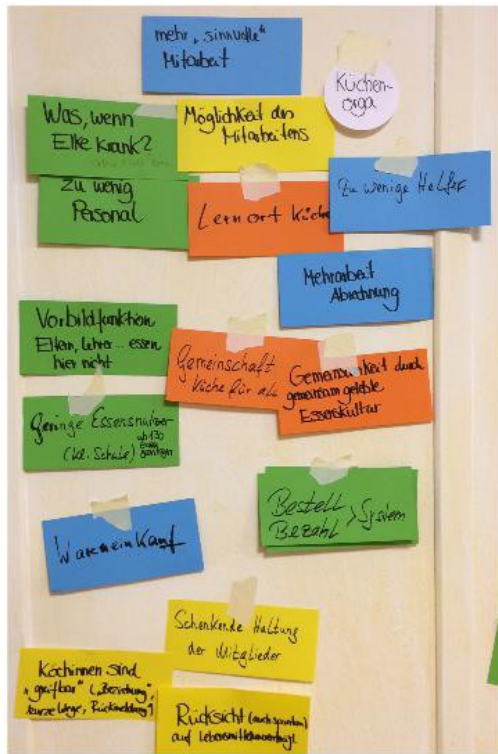 mehr „sinnvolle"
Mitarbeit
Küchen-
orga
Was, wenn
Elke krank?
Möglichkeit des
Mitarbeitens
zu wenig
Personal
Lernort Küche
Zu wenige Helfer
Mehrarbeit
Abrechnung
Vorbildfunktion
Eltern, Lehrer... essen
hier nicht
Gemeinschaft
Küche für alle
Gemeinsamkeit durch
gemeinsam gelebte
Esserskultur
Geringe Essensnutzer
(kl. Schule) ab 130
Bestell
Bezahl > System
Wareneinkauf
Schenkende Haltung
der Mitglieder
Köchinnen sind
„greifbar" („Beziehung",
kurze Wege, Rückmeldung)
Rücksicht (auch spontan)
auf Lebensmittelunverträgl.